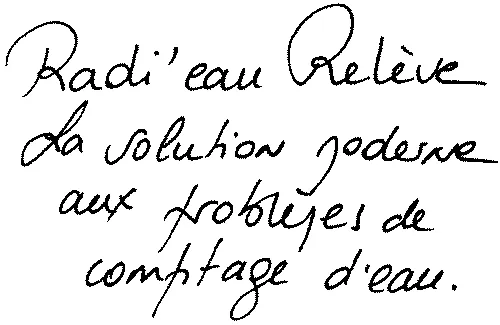 Radi'eau Relève
La solution moderne
aux problèmes de
comptage d'eau.